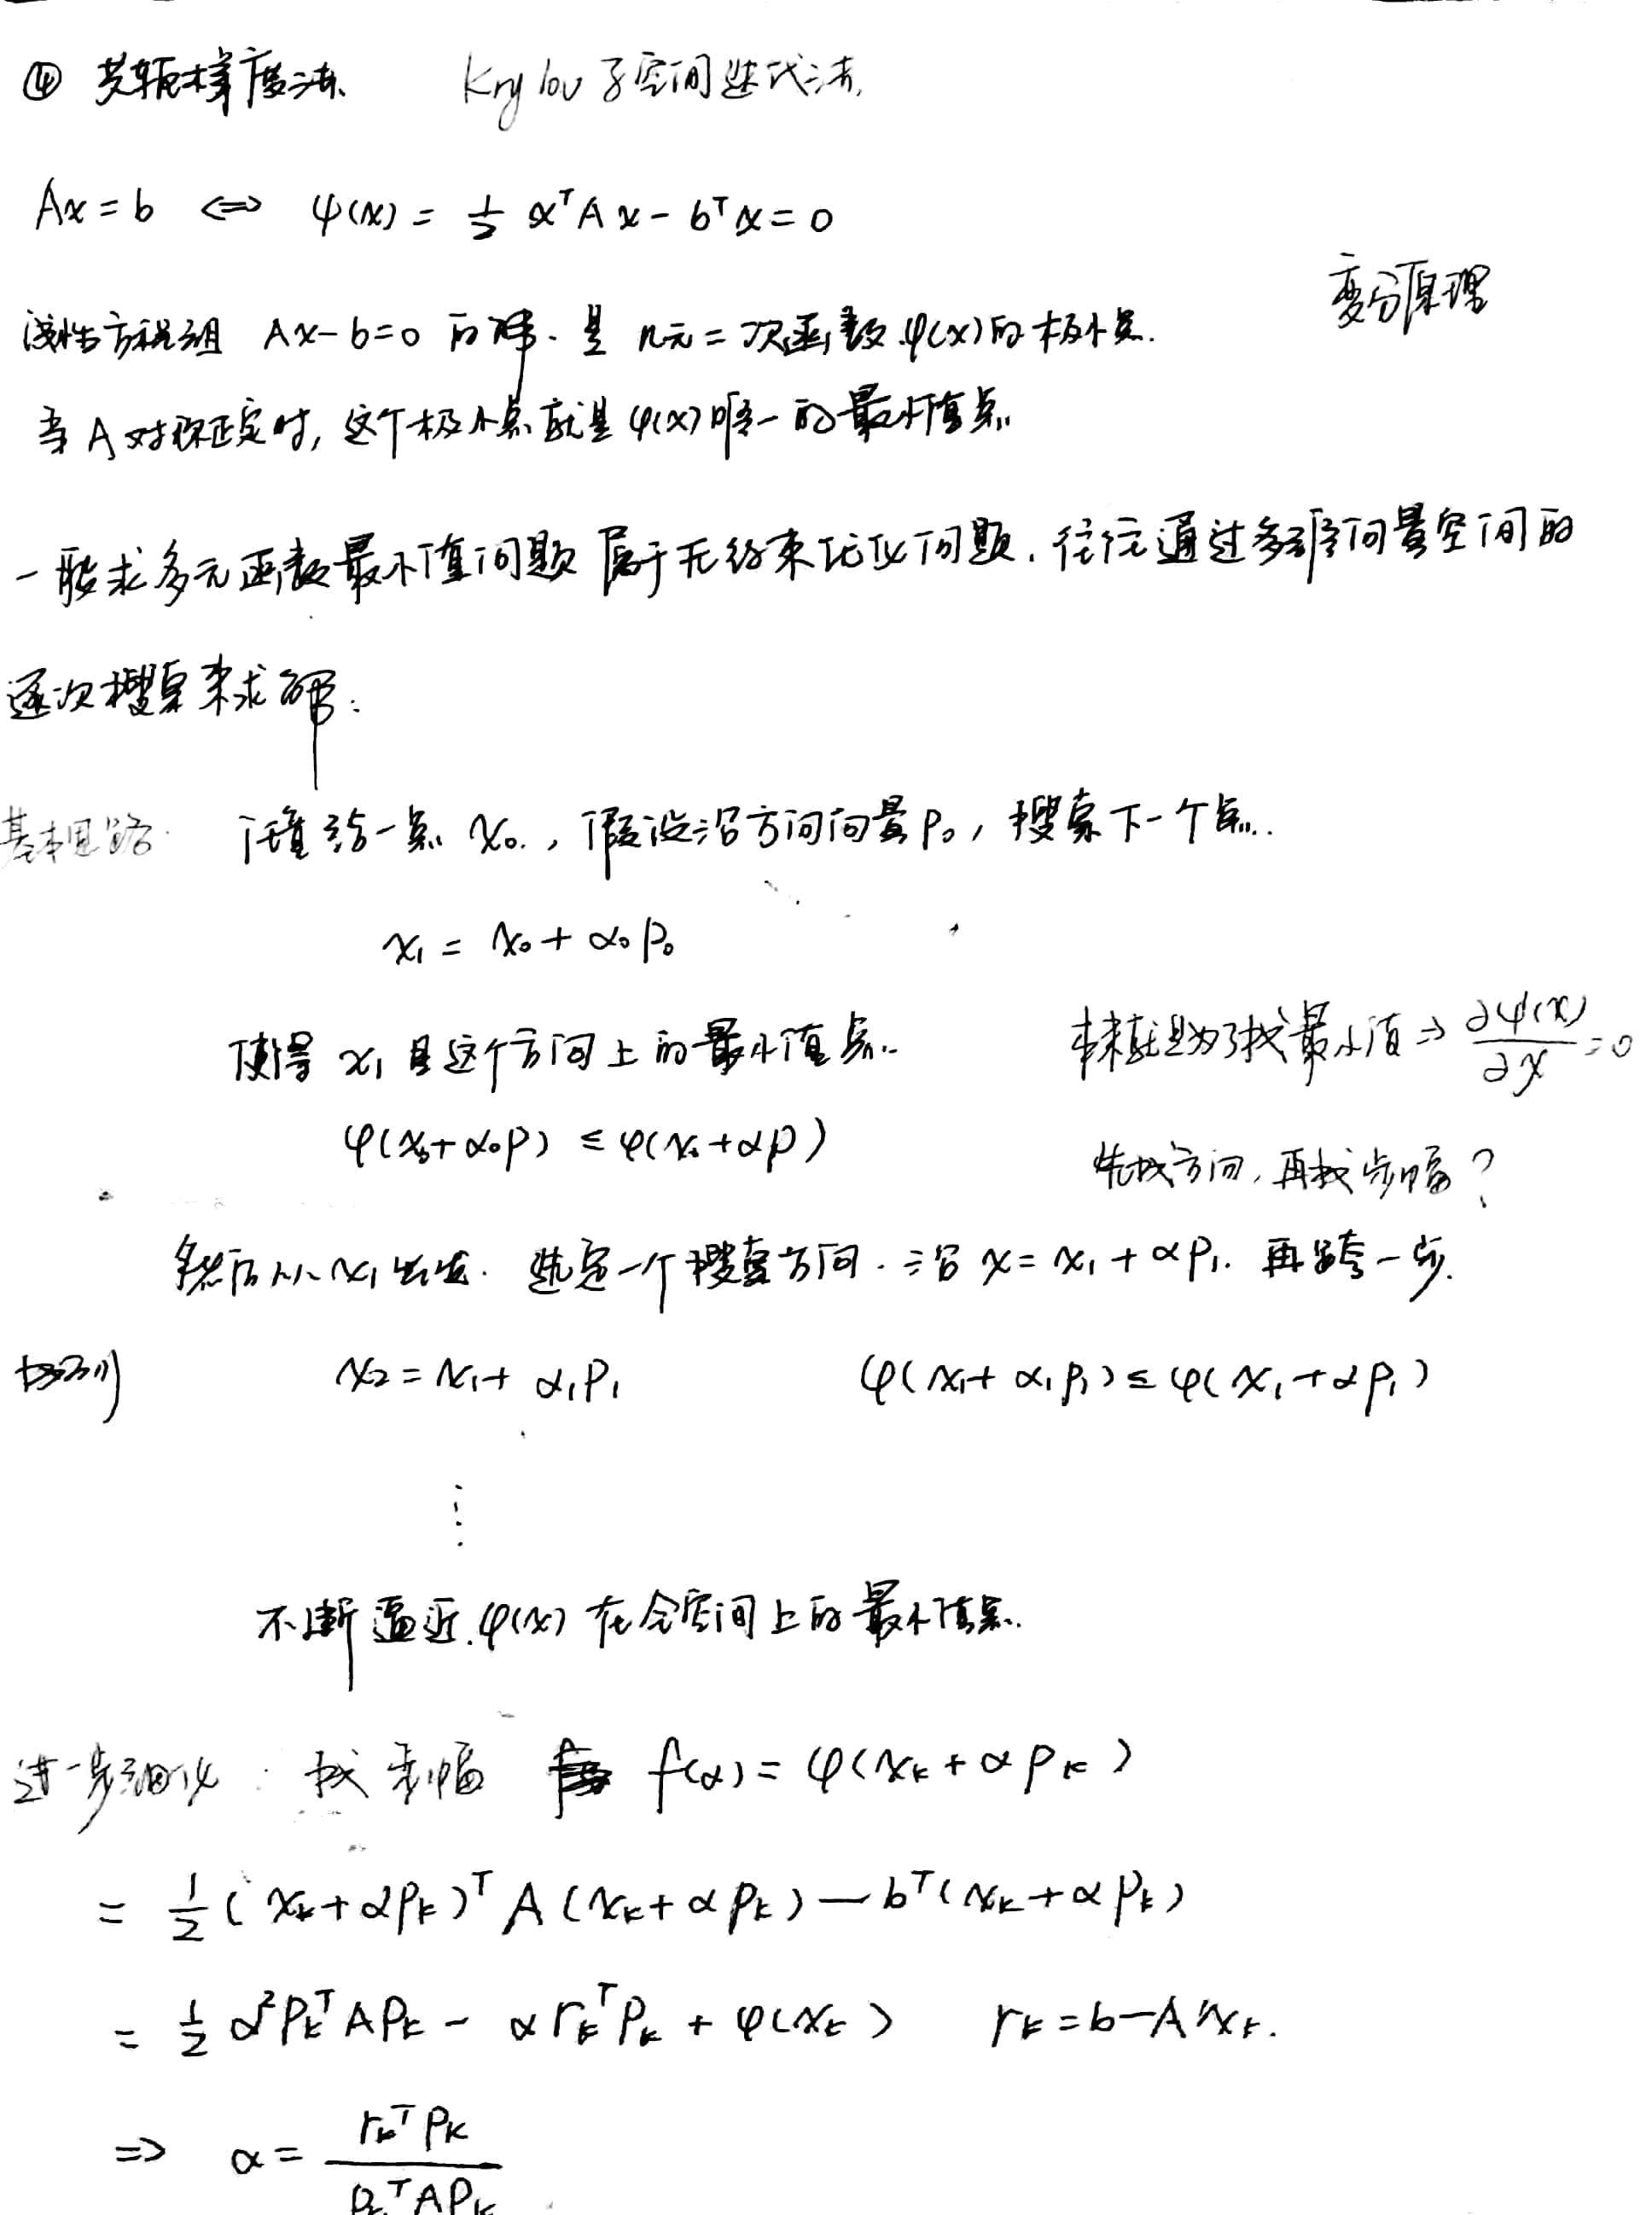 ④ 共轭梯度法 Krylov 子空间迭代法
Ax = b ⟺ φ(x) = 1/2 xᵀAx - bᵀx = 0
变分原理
线性方程组 Ax-b=0 的解.是 n元二次函数 φ(x)的极小点.
当A对称正定时,这个极小点就是φ(x)唯一的最小值点.
一般求多元函数最小值问题属于无约束优化问题.往往通过多维向量空间的
逐次搜索来求解:
基本思路 任意给一点 x₀.,假设沿方向向量p₀,搜索下一个点..
x₁ = x₀ + α₀p₀
使得 x₁ 是这个方向上的最小值点. 本来就是为了找最小值 ⇒ ∂φ(x)/∂x = 0
φ(x₀+α₀p) ≤ φ(x₀+αp) 先找方向,再找步幅?
然后从x₁出发.选定一个搜索方向.沿 x = x₁ + αp₁. 再跨一步.
x₂ = x₁ + α₁p₁ φ(x₁+α₁p₁) ≤ φ(x₁+αp₁)
⋮
不断逼近.φ(x)在全空间上的最小值点.
进一步细化: 找步幅 f(α) = φ(xₖ+αpₖ)
= 1/2 (xₖ+αpₖ)ᵀA(xₖ+αpₖ) - bᵀ(xₖ+αpₖ)
= 1/2 α²pₖᵀApₖ - αrₖᵀpₖ + φ(xₖ) rₖ = b - Axₖ.
⇒ α = rₖᵀpₖ / pₖᵀApₖ